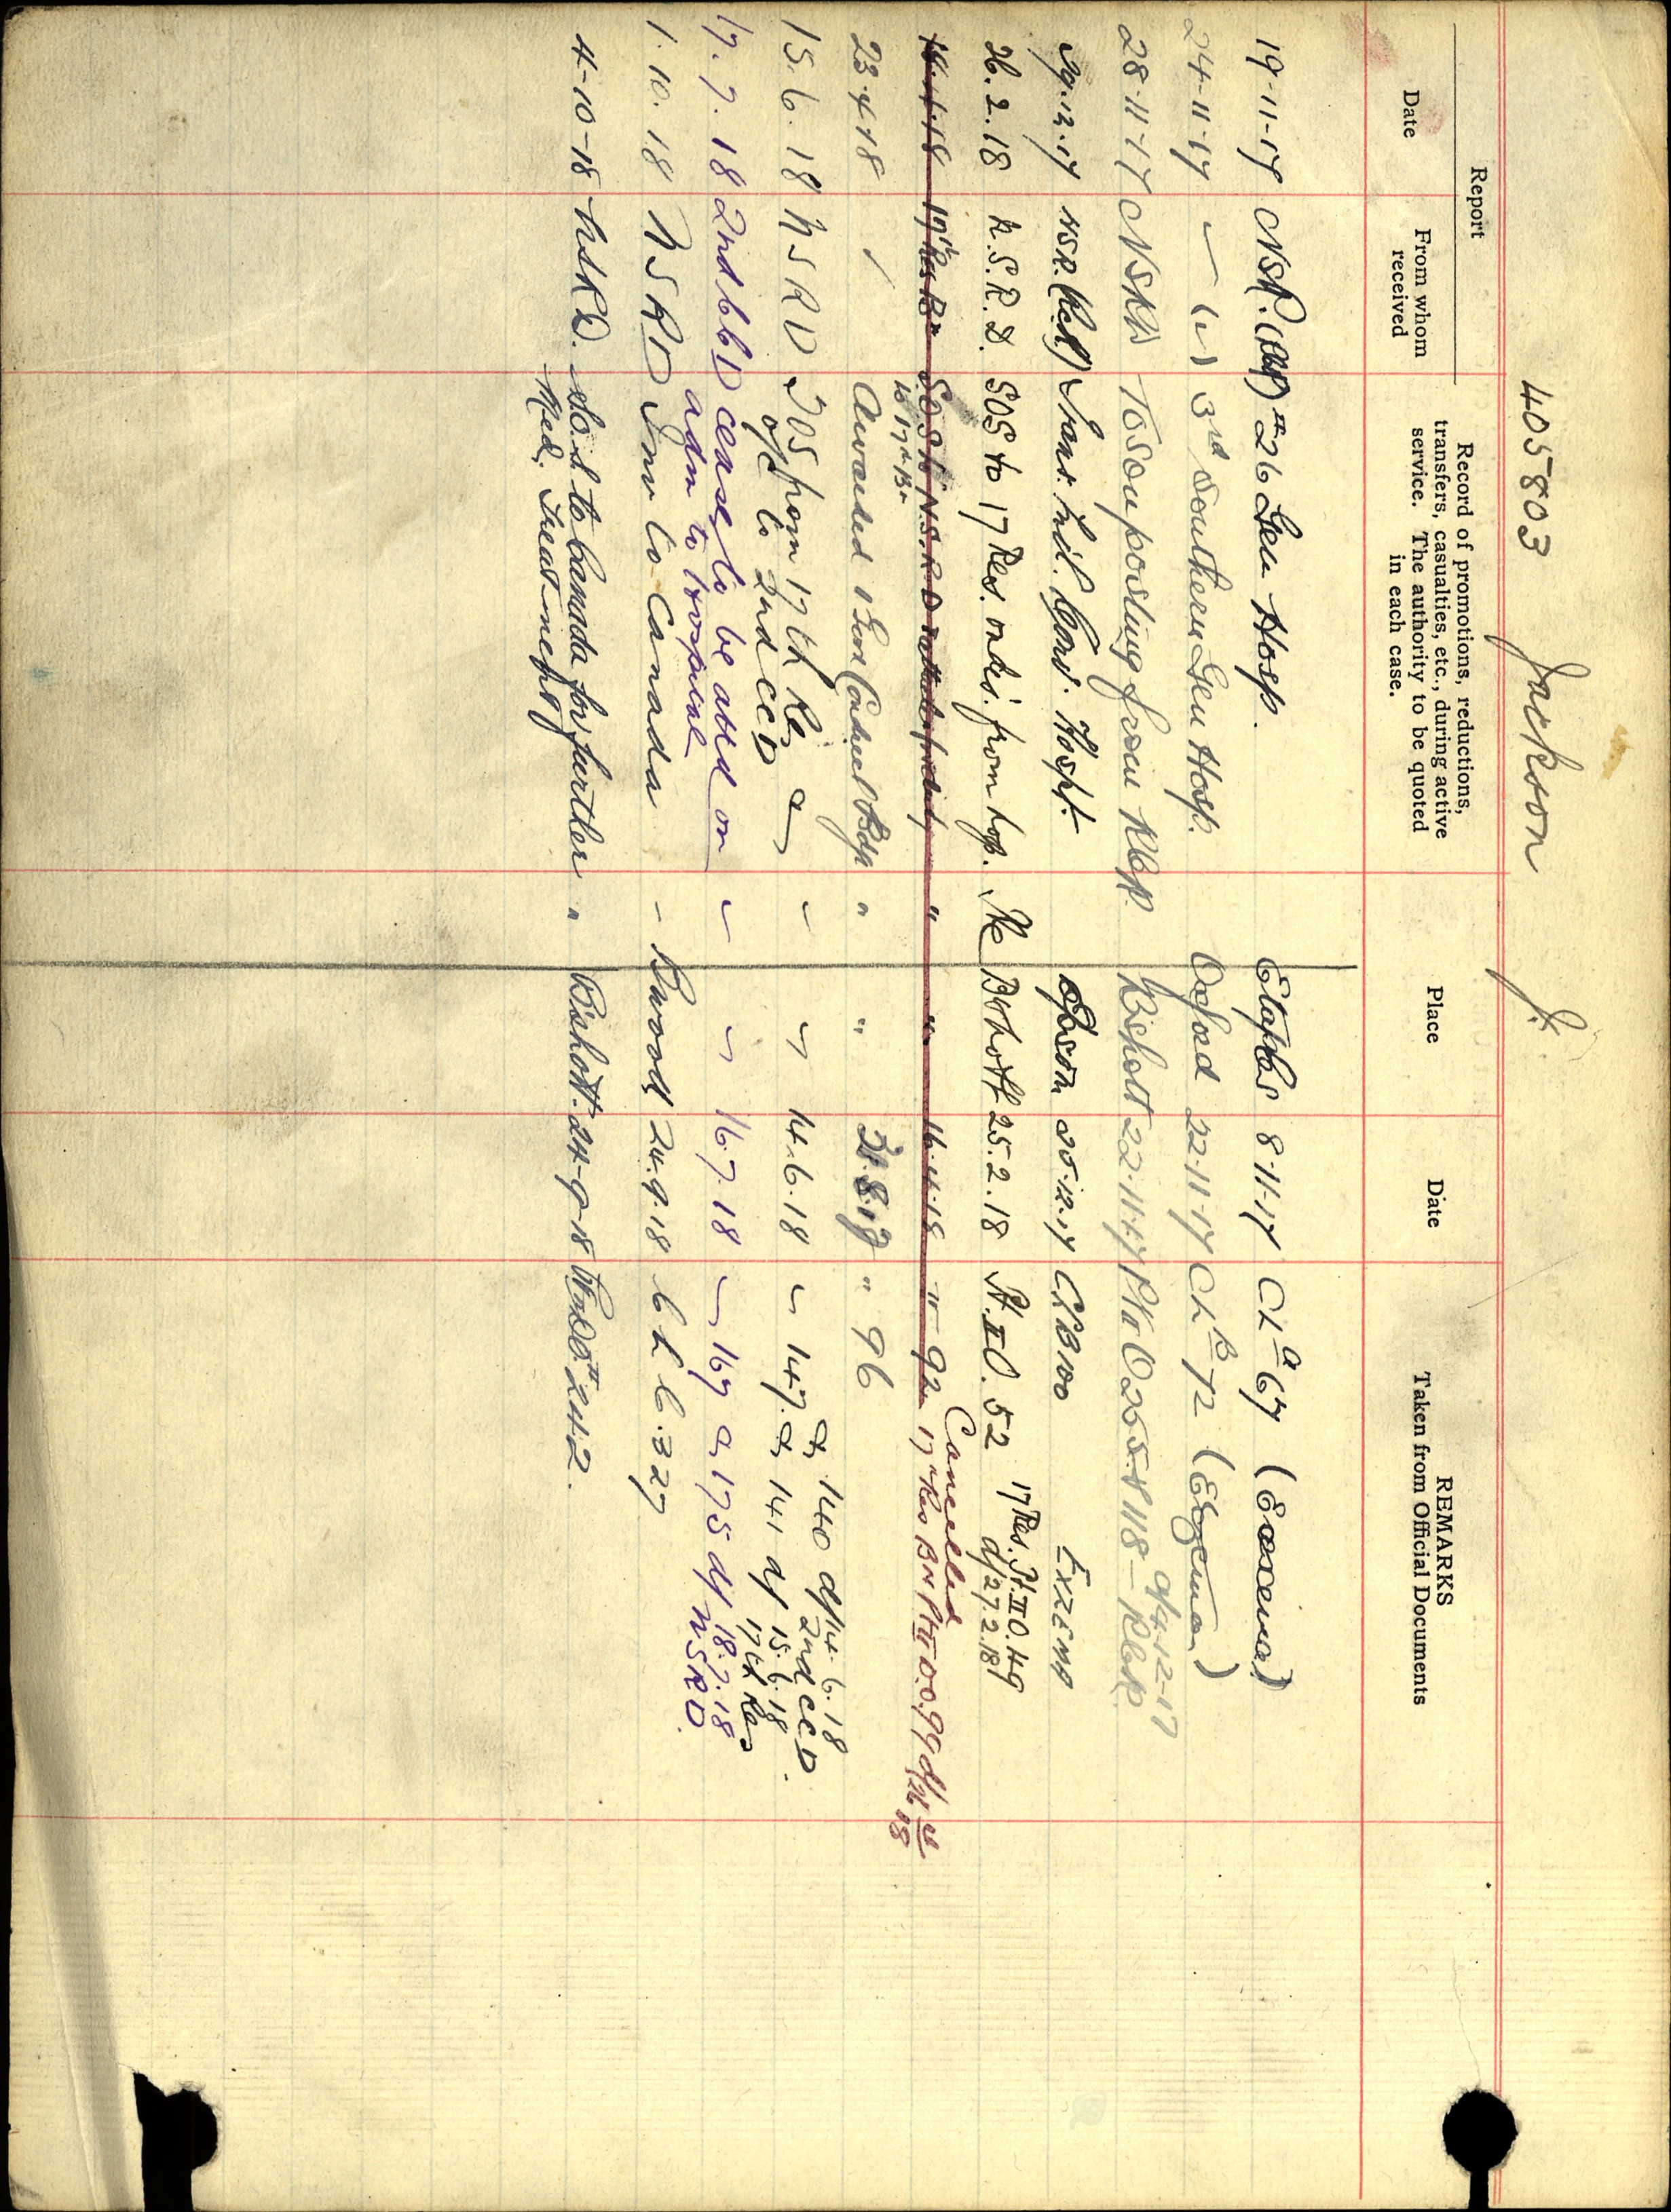 405803 Jackson J.
Report
Date
From whom received
Record of promotions, reductions, transfers, casualties, etc., during active service. The authority to be quoted in each case.
Place
Date
REMARKS
Taken from Official Documents
19-11-17 NSR. #26 Gen Hosp. Etaples 8-11-17 CL a 67 (Eczema)
24-11-17 3rd Southern Gen Hosp. Oxford 22-11-17 CL B 72 (Eczema)
28-11-17 NSRD TOS on posting from Bshott 22-11-17 Pt II O 255 118
29.12.17 NSR. Trans. Mil. Conv. Hospt. Epsom 20.12.17 CL B100 Exzema
26.2.18 N.S.R.D. SOS to 17 Res. from Bshott 25.2.18 Pt. II O. 52 17 Res. Pt. II O. 49
d/27.2.18
17th Res Bn SOS to N.S.R.D " " 16.4.18 " 92 Cancelled
to 17th Bn 17th Res Bn Pt II O.O. 99 d/26 4/18
23.4.18 Awarded 1 Good Conduct Badge " " " 96
15.6.18 NSRD TOS from 17th Res 14.6.18 147. & 140 d/14.6.18
o/c to 2nd CCD 2nd CCD.
& 141 d/ 15.6.18
17th Res
17.7.18 2nd CCD cease to be attd on 16.7.18 169 & 175 d/ 18.7.18
adm to Hospital NSRD.
1.10.18 NSRD Inv to Canada - 24.9.18 C L C.327
4-10-18 NSRD. S.O.S to Canada for further " B'shott. 24-9-18 242.
Med. Treatment